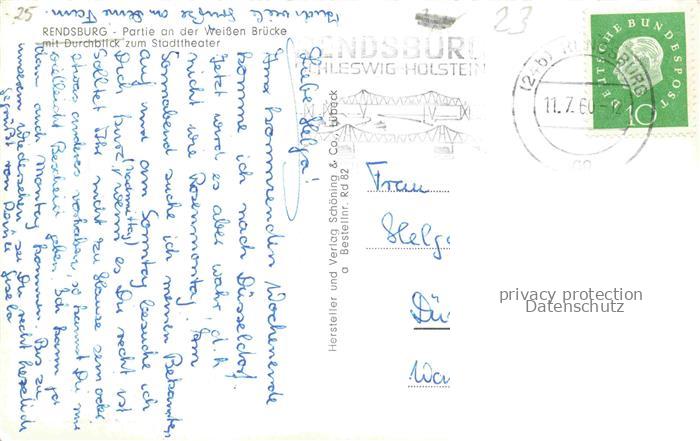 25
23
Auch viele Grüße an Deine Fam.
RENDSBURG - Partie an der Weißen Brücke
mit Durchblick zum Stadttheater
Liebe Helga!
Am kommenden Wochenende
komme ich nach Düsseldorf.
Jetzt wird es aber wahr, d.h.
nicht wie Rosenmontag. Am
Sonnabend suche ich meinen Bekannten
auf und am Sonntag besuche ich
Dich kurz (nachmittag) wenn es Dir recht ist.
Solltet Ihr nicht zu Hause sein oder
etwas anderes vorhaben, so kannst Du mir
vielleicht Bescheid geben. Ich kann ja
dann auch Montag kommen. Bis zu
unserem Wiedersehen sei Du recht herzlich
gegrüßt von Deiner Gisela
Hersteller und Verlag Schöning & Co., Lübeck
a Bestellnr. Rd 82
RENDSBURG
SCHLESWIG-HOLSTEIN
(24b) RENDSBURG
11.7.60
DEUTSCHE BUNDESPOST
10
Frau
Helga
Dü
Wa
privacy protection
Datenschutz